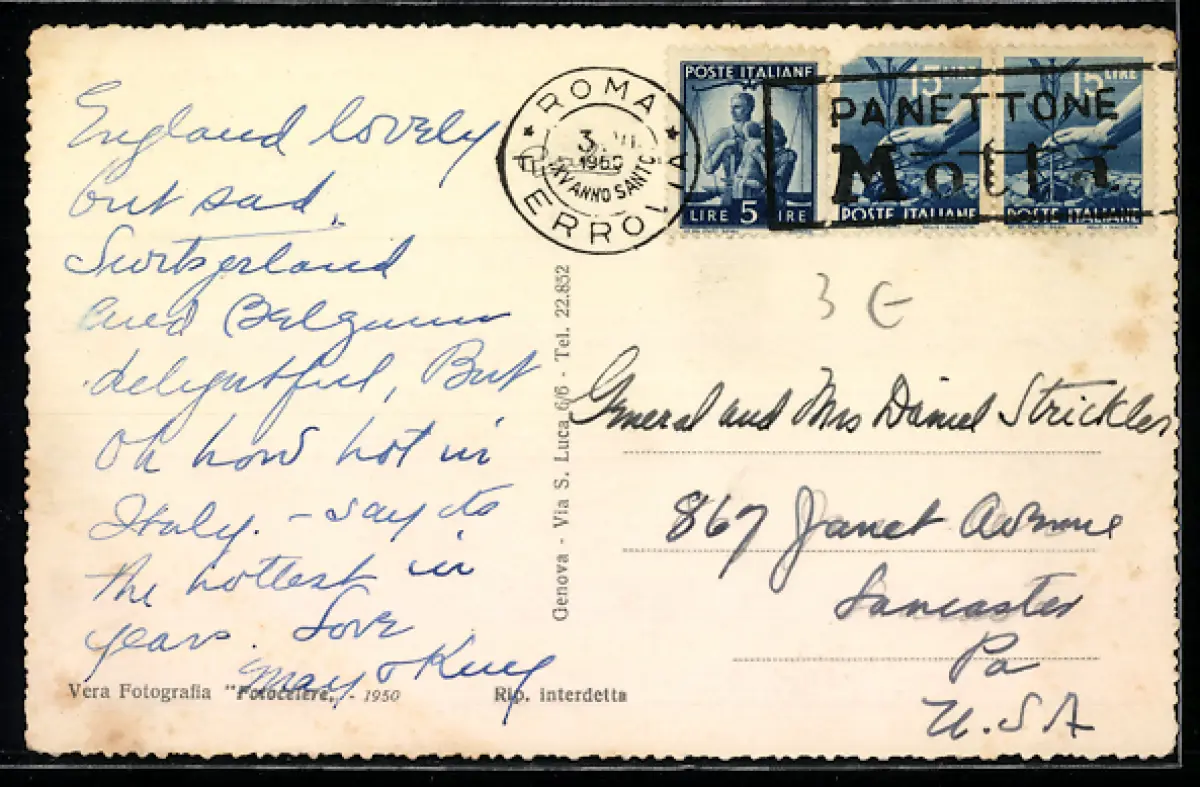 England lovely
but sad.
Switzerland
and Belgium
delightful, But
Oh how hot in
Italy. - say its
the hottest in
years. Love
May & King
Vera Fotografia "Fotocelere" - 1950
Rip. interdetta
Genova - Via S. Luca, 6/6 - Tel. 22.852
ROMA
3
1950
XXV ANNO SANTO
FERROVIA
POSTE ITALIANE
LIRE 5 LIRE
15 LIRE
POSTE ITALIANE
15 LIRE
POSTE ITALIANE
PANETTONE
Motta
3 €
General and Mrs Daniel Strickler
867 Janet Avenue
Lancaster
Pa
U.S.A